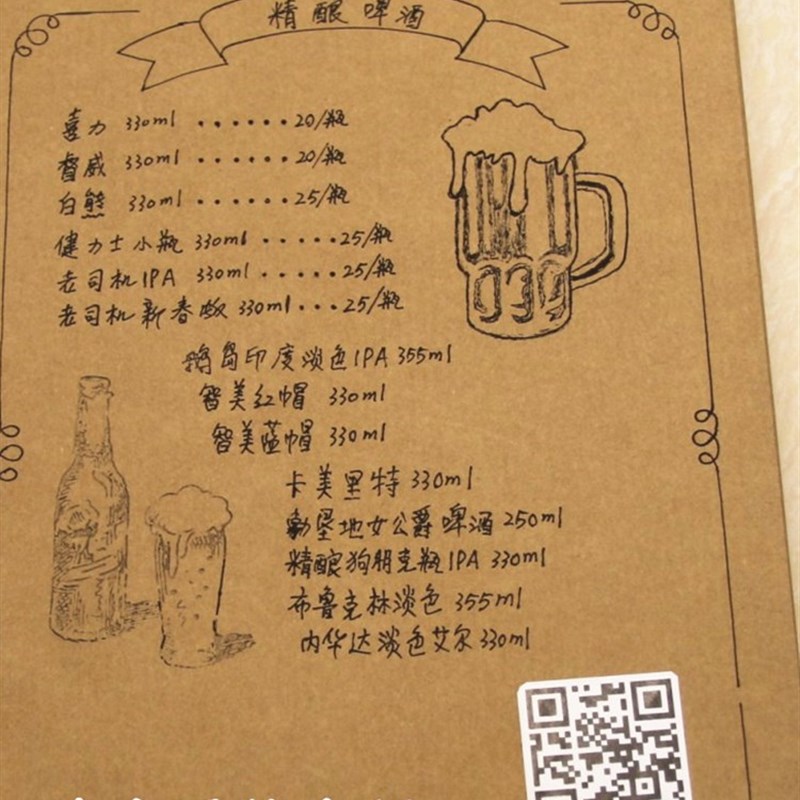 精酿啤酒
喜力 330ml ······20/瓶
百威 330ml ······20/瓶
白熊 330ml ······25/瓶
健力士小瓶 330ml ·····25/瓶
老司机IPA 330ml ·····25/瓶
老司机新春版 330ml ···25/瓶
鹅岛印度淡色IPA 355ml
智美红帽 330ml
智美蓝帽 330ml
卡美里特 330ml
勃垦地女公爵啤酒 250ml
精酿狗朋克瓶IPA 330ml
布鲁克林淡色 355ml
内华达淡色艾尔 330ml